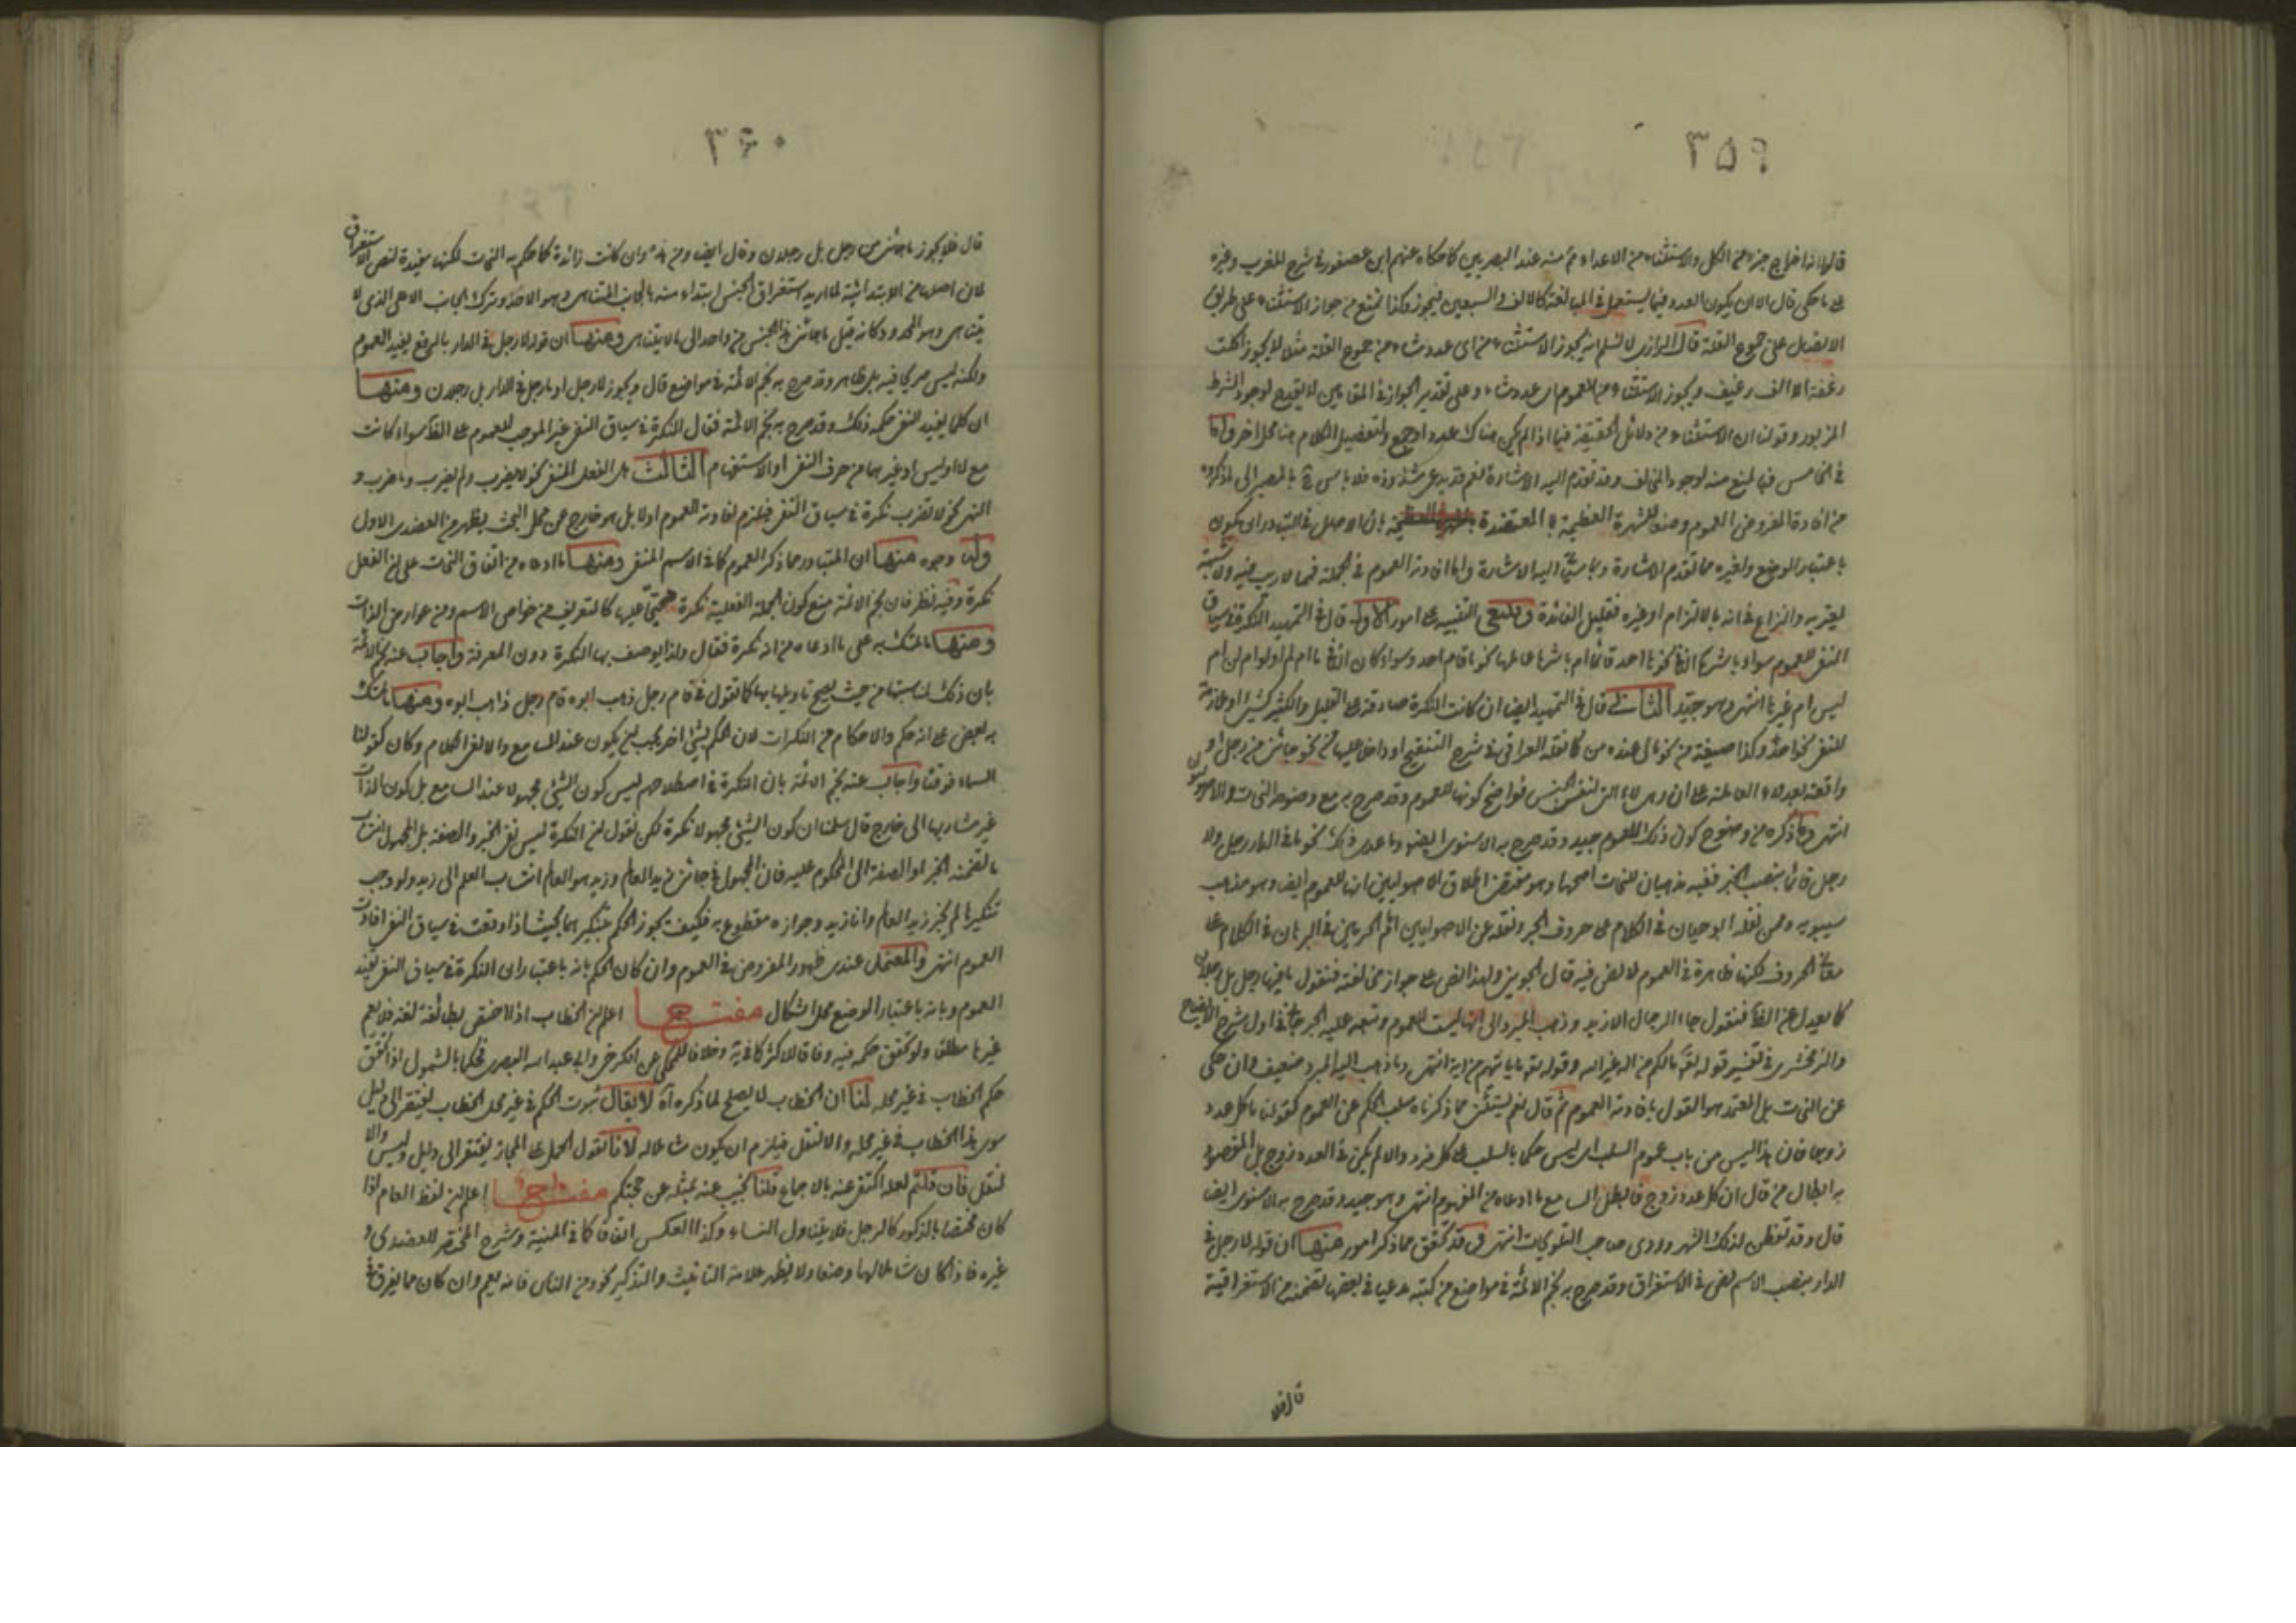 ٣٥٩
قالها انه اخراج جزء من الكل والاستثناء من الاعداد ممتنع عند البصريين كما حكاه عنهم ابن عصفور في شرح المقرب وغيره
على ما حكى قال الا ان يكون العدد فيما يستعمل في المبالغة كالالف والسبعين فيجوز وكذا نمنع من جواز الاستثناء على طريق
الاتصال على جموع القلة قال الرازي لا نسلم انه يجوز الاستثناء من اى عدد شاء من جموع القلة مثلا لا يجوز اكلت
رغفة الا الف رغيف ويجوز الاستثناء من العموم اى عدد شاء وعلى تقدير الجواز في المقامين لا يقدح لوجود الشرط
المزبور وقولنا ان الاستثناء من دلائل الحقيقة فيما اذا لم يكن هناك عدد او جمع ولتفصيل الكلام هنا محل اخر واما
في الخامس فبالمنع منه لوجود المخالف وقد تقدم اليه الاشارة نعم قد يدعى شذوذه فلا باس ح بالمصير الى ما ذكروه
من افادة المفرد في العموم وضعا للشهرة العظيمة المعتضدة بان الاصل في التبادر ان يكون
باعتبار الوضع ولغيره مما تقدم الاشارة وياتي اليه الاشارة واما افادته العموم في الجملة فمما لا ريب فيه ولا شبهة
يعتريه والنزاع في انه بالالتزام او غيره قليل الفائدة وينبغي التنبيه على امور الاول قال في التمهيد النكرة في سياق
النفي للعموم سواء باشرها النافي نحو ما احد قائم ام باشر عاملها نحو ما قام احد وسواء كان النافي ما ام لم او لن ام
ليس ام غيرها انتهى وهو جيد الثاني قال في التمهيد ايضا ان كانت النكرة صادقة على القليل والكثير كشئ او ملازمة
للنفي نحو احد وكذا صيغة من نحو مالى عنده من كما نقله العراقي في شرح التنقيح او داخل عليها من نحو ما جائني من رجل او
واقعة بعد لا العاملة عمل ان وهى لا التي لنفي الجنس فواضح كونها للعموم وقد صرح به مع وضوحه النحاة والاصوليون
انتهى وما ذكره من وضوح كون ذلك للعموم جيد وقد صرح به الاسنوي ايضا وما عدى ذلك نحو ما في الدار رجل ولا
رجل قائما بنصب الخبر ففيه مذهبان للنحاة اصحهما وهو مقتضى اطلاق الاصوليين انها للعموم ايضا وهو مذهب
سيبويه وممن نقله ابو حيان في الكلام على حروف الجر ونقله عن الاصوليين امام الحرمين في البرهان في الكلام على
معاني الحروف لكنها ظاهرة في العموم لا نص فيه قال الجويني ولهذا نص على جواز مخالفته فنقول ما فيها رجل بل رجلان
كما يعدل عن الظاهر فنقول جاء الرجال الا زيد وذهب المبرد الى انها ليست للعموم وتبعه عليه الجرجاني في اول شرح الايضاح
والزمخشري في تفسير قوله تعالى ما لكم من اله غيره وقوله تعالى ما ياتيهم من اية انتهى وما ذهب اليه المبرد ضعيف وان حكى
عن النحاة بل المعتمد هو القول بافادته العموم ثم قال نعم يستثنى مما ذكرناه سلب الحكم عن العموم كقولنا ما كل عدد
زوجا فان هذا ليس من باب عموم السلب اى ليس حكما بالسلب على كل فرد والا لم يكن في العدد زوج بل المقصود
به ابطال من قال ان كل عدد زوج فابطل السامع ما ادعاه من العموم انتهى وهو جيد وقد صرح به الاسنوي ايضا
قال وقد تفطن لذلك السهروردي صاحب التلويحات انتهى وقد تحقق مما ذكر امور منها ان قوله لا رجل في
الدار بنصب الاسم نص في الاستغراق وقد صرح به نجم الائمة في مواضع من كتبه مدعيا في بعضها تضمنه من الاستغراقية
قال فلا
٣٦٠
قال فلا يجوز ما جائني من رجل بل رجلان وقال ايضا ومن هذه وان كانت زائدة كما حكم به النحاة لكنها مفيدة لنص الاستغراق
لان اصلها من الابتدائية لما اريد استغراق الجنس ابتداء منه بالجانب المتناهى وهو الاحد وترك الجانب الاعلى الذى لا
يتناهى وهو المحدود كانه قيل ما جائني هذا الجنس من واحد الى ما لا يتناهى ومنها ان قوله لا رجل في الدار بالرفع يفيد العموم
ولكنه ليس صريحا فيه بل ظاهر وقد صرح به نجم الائمة في مواضع قال ويجوز لا رجل او ما رجل في الدار بل رجلان ومنها
ان كلما يفيد النفي حكمه ذلك وقد صرح به نجم الائمة فقال النكرة في سياق النفي غير الموجب للعموم على الظاهر سواء كانت
مع لا او ليس او غيرهما من حرف النفي او الاستفهام الثالث هل الفعل المنفي نحو لا يضرب ولم يضرب وما ضرب و
النهي نحو لا تضرب نكرة في سياق النفي فيلزم افادته العموم اولا بل هو خارج عن محل البحث يظهر من العضدي الاول
وله وجوه منها ان المتبادر مما ذكر العموم كما في الاسم المنفي ومنها ما ادعاه من اتفاق النحاة على ان الفعل
نكرة وفيه نظر فان نجم الائمة منع كون الجملة الفعلية نكرة محتجا عليه كالتعريف من خواص الاسم ومن عوارض الذات
ومنها ما تمسك به على ما ادعاه من انه نكرة فقال ولذا يوصف بها النكرة دون المعرفة واجاب عنه نجم الائمة
بان ذلك لمناسبتها من حيث يصح تاويلها بها كما تقول في قام رجل ذهب ابوه قام رجل ذاهب ابوه ومنها ما تمسك
به بعض على انه حكم والاحكام من النكرات لان الحكم بشئ اخر يجب ان يكون عند السامع والا لغى الكلام وكان كقولنا
السماء فوقنا واجاب عنه نجم الائمة بان النكرة في اصطلاحهم ليس كون الشئ مجهولا عند السامع بل كون الذات
غير مشار بها الى خارج قال سلمنا ان كون الشئ مجهولا نكرة لكن نقول ان النكرة ليس نفس الخبر والصفة بل المجهول انتساب
ما تضمنه الخبر او الصفة الى المحكوم عليه فان المجهول في جائني زيد العالم وزيد هو العالم انتساب العلم الى زيد ولو وجب
تنكيرها لم يجز زيد العالم وانا زيد وجوازه مقطوع به فكيف يجوز الحكم بتنكيرهما بحيث اذا وقعت في سياق النفي افادت
العموم انتهى والمعتمد عندى ظهور المفروض في العموم وان كان الحكم بانه باعتبار ان النكرة في سياق النفي يفيد
العموم وبانه باعتبار الوضع محل اشكال مفتاح اعلم ان الخطاب اذا اختص بطائفة لغة فلا يعم
غيرها مطلقا ولو تحقق حكمه فيه وفاقا للاكثر كما في ية وخلافا للمحكى عن الكرخي وابي عبد الله البصري فحكما بالشمول اذا تحقق
حكم الخطاب في غير محله لنا ان الخطاب لا يصلح لما ذكره اه لا يقال ثبوت الحكم في غير محل الخطاب يفتقر الى دليل
سوى هذا الخطاب في غير محله والا لنقل فيلزم ان يكون شاملا له لانا نقول الحمل على المجاز يفتقر الى دليل وليس والا
لنقل فان قلتم لعله اكتفى عنه بالاجماع قلنا نجيب عنه بمثله عن حجتكم مفتاح اعلم ان لفظ العام اذا
كان مختصا بالذكور كالرجل فلا يتناول النساء وكذا العكس اتفاقا كما في المنية وشرح المختصر للعضدي و
غيره فاذا كان شاملا لهما وضعا ولا يظهر علامة التانيث والتذكير نحو من الناس فانه يعم وان كان مما يفرق في